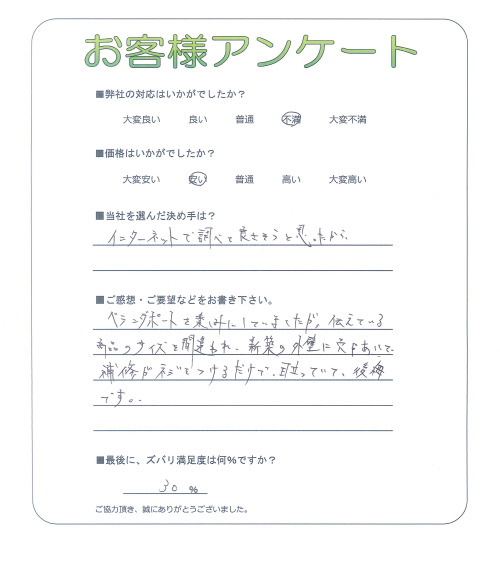 お客様アンケート
■弊社の対応はいかがでしたか?
大変良い 良い 普通 不満 大変不満
■価格はいかがでしたか?
大変安い 安い 普通 高い 大変高い
■当社を選んだ決め手は?
インターネットで調べて良さそうと思ったから
■ご感想・ご要望などをお書き下さい。
ベランダポートを楽しみにしていましたが、伝えている
商品のサイズを間違われ、新築の外壁に穴があいて、
補修がネジをつけるだけで、目立っていて、後悔
です。
■最後に、ズバリ満足度は何%ですか?
30 %
ご協力頂き、誠にありがとうございました。